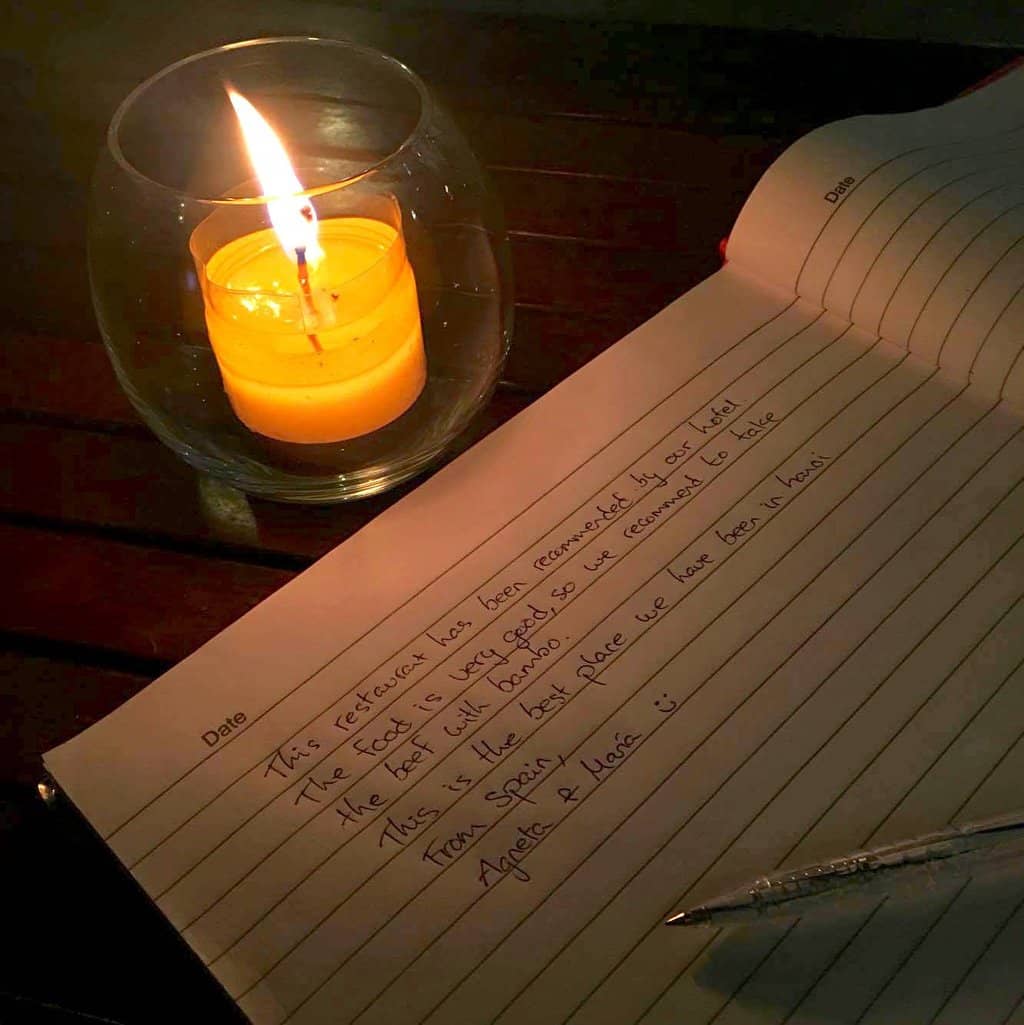 Date
Date
This restaurant has been recommended by our hotel
The food is very good, so we recommend to take
the beef with bambo.
This is the best place we have been in hanoi
From Spain,
Agneta & María :)